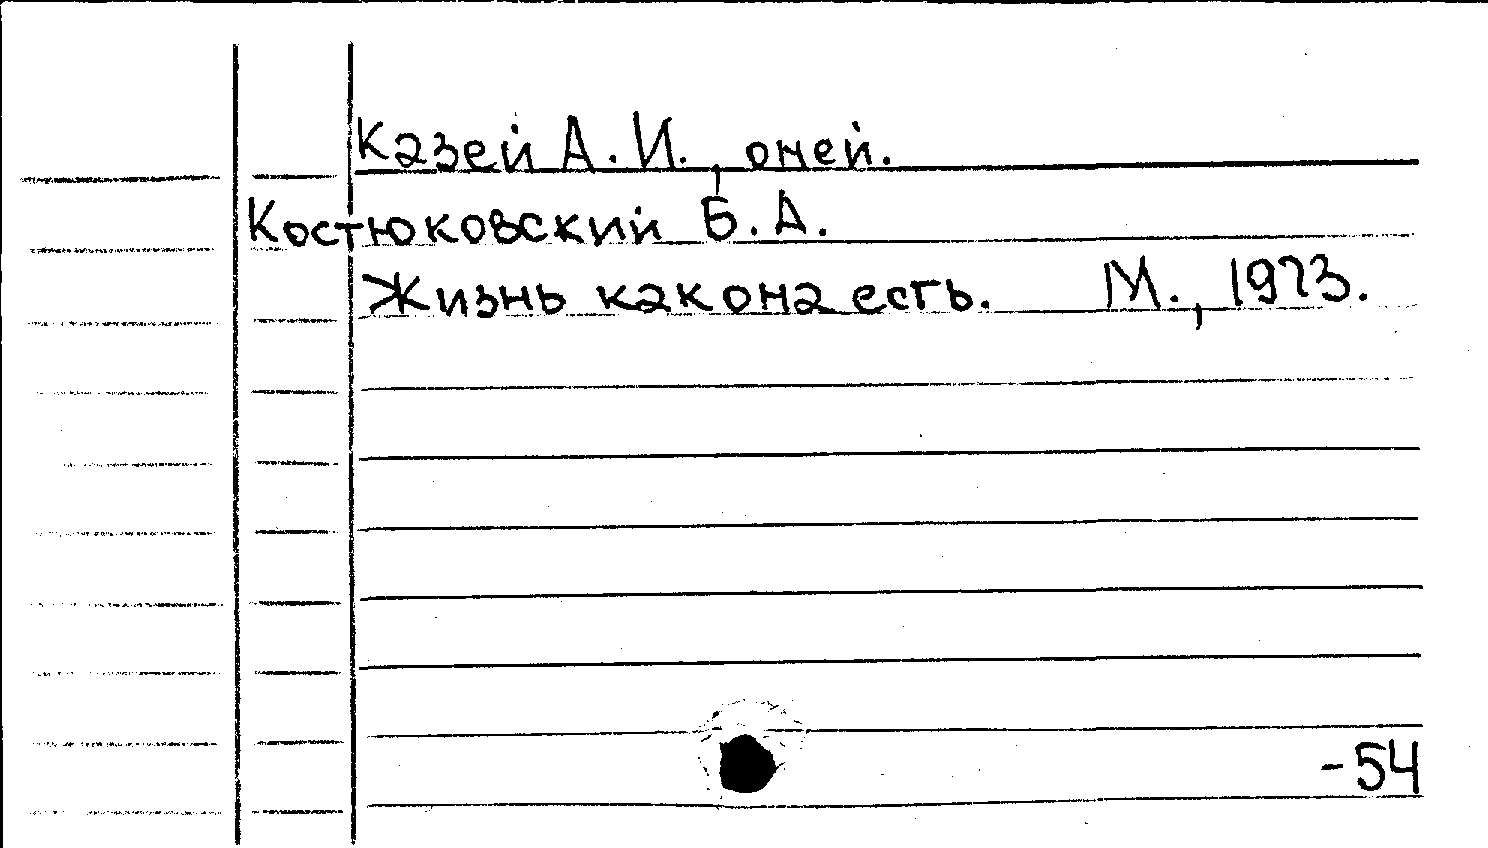 Казей А. И., о ней.
Костюковский Б. А.
Жизнь как она есть. М., 1973.
-54